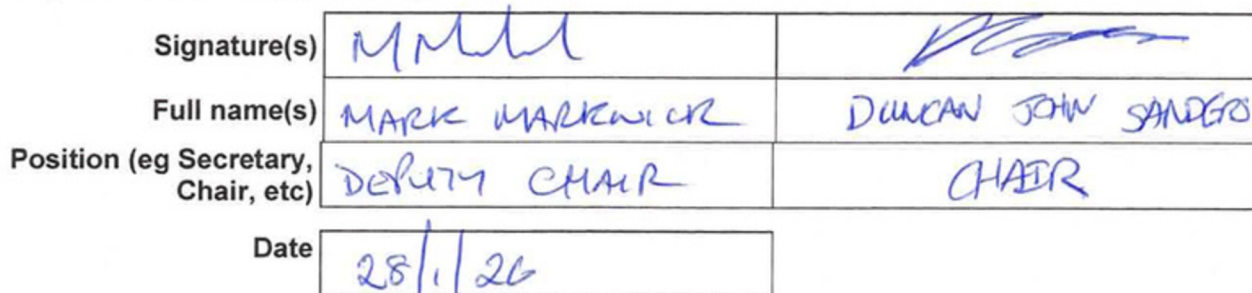 Signature(s)
Full name(s) MARK MARKWICK DUNCAN JOHN SANDERS
Position (eg Secretary, Chair, etc) DEPUTY CHAIR CHAIR
Date 28/1/26